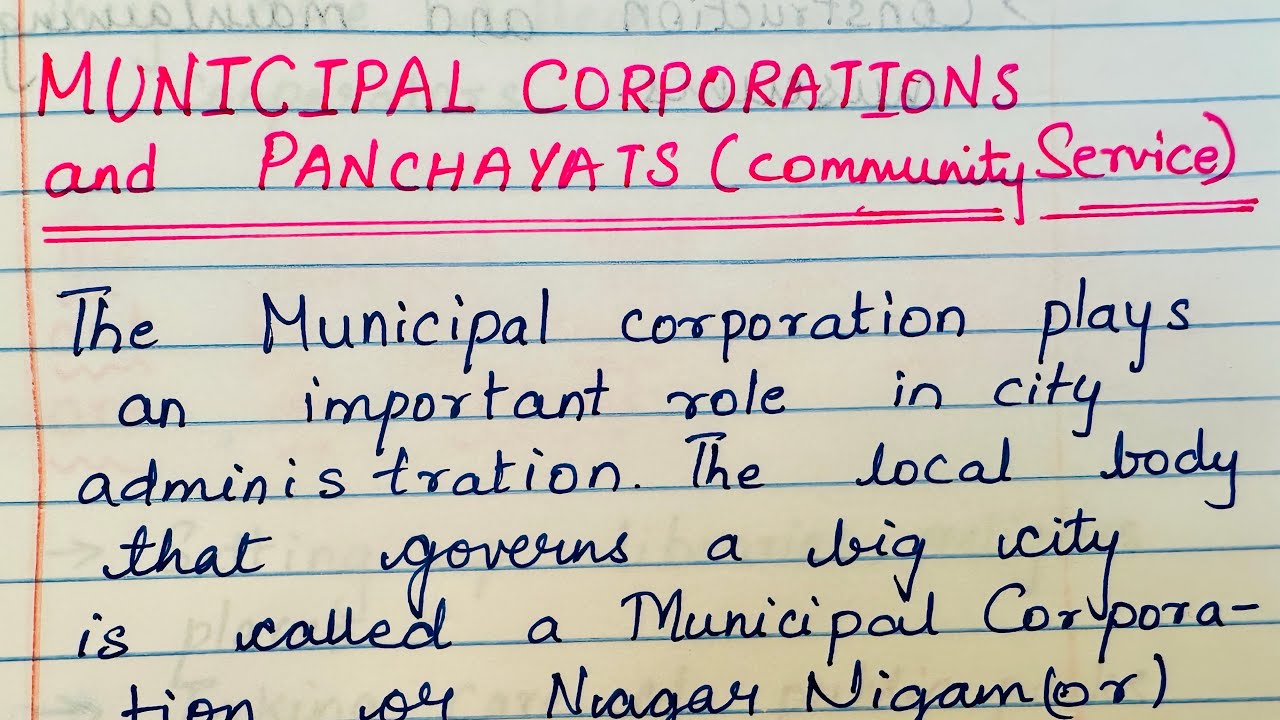 MUNICIPAL CORPORATIONS
and PANCHAYATS (community Service)
The Municipal corporation plays
an important role in city
administration. The local body
that governs a big city
is called a Municipal Corpora-
tion or Nagar Nigam (or)